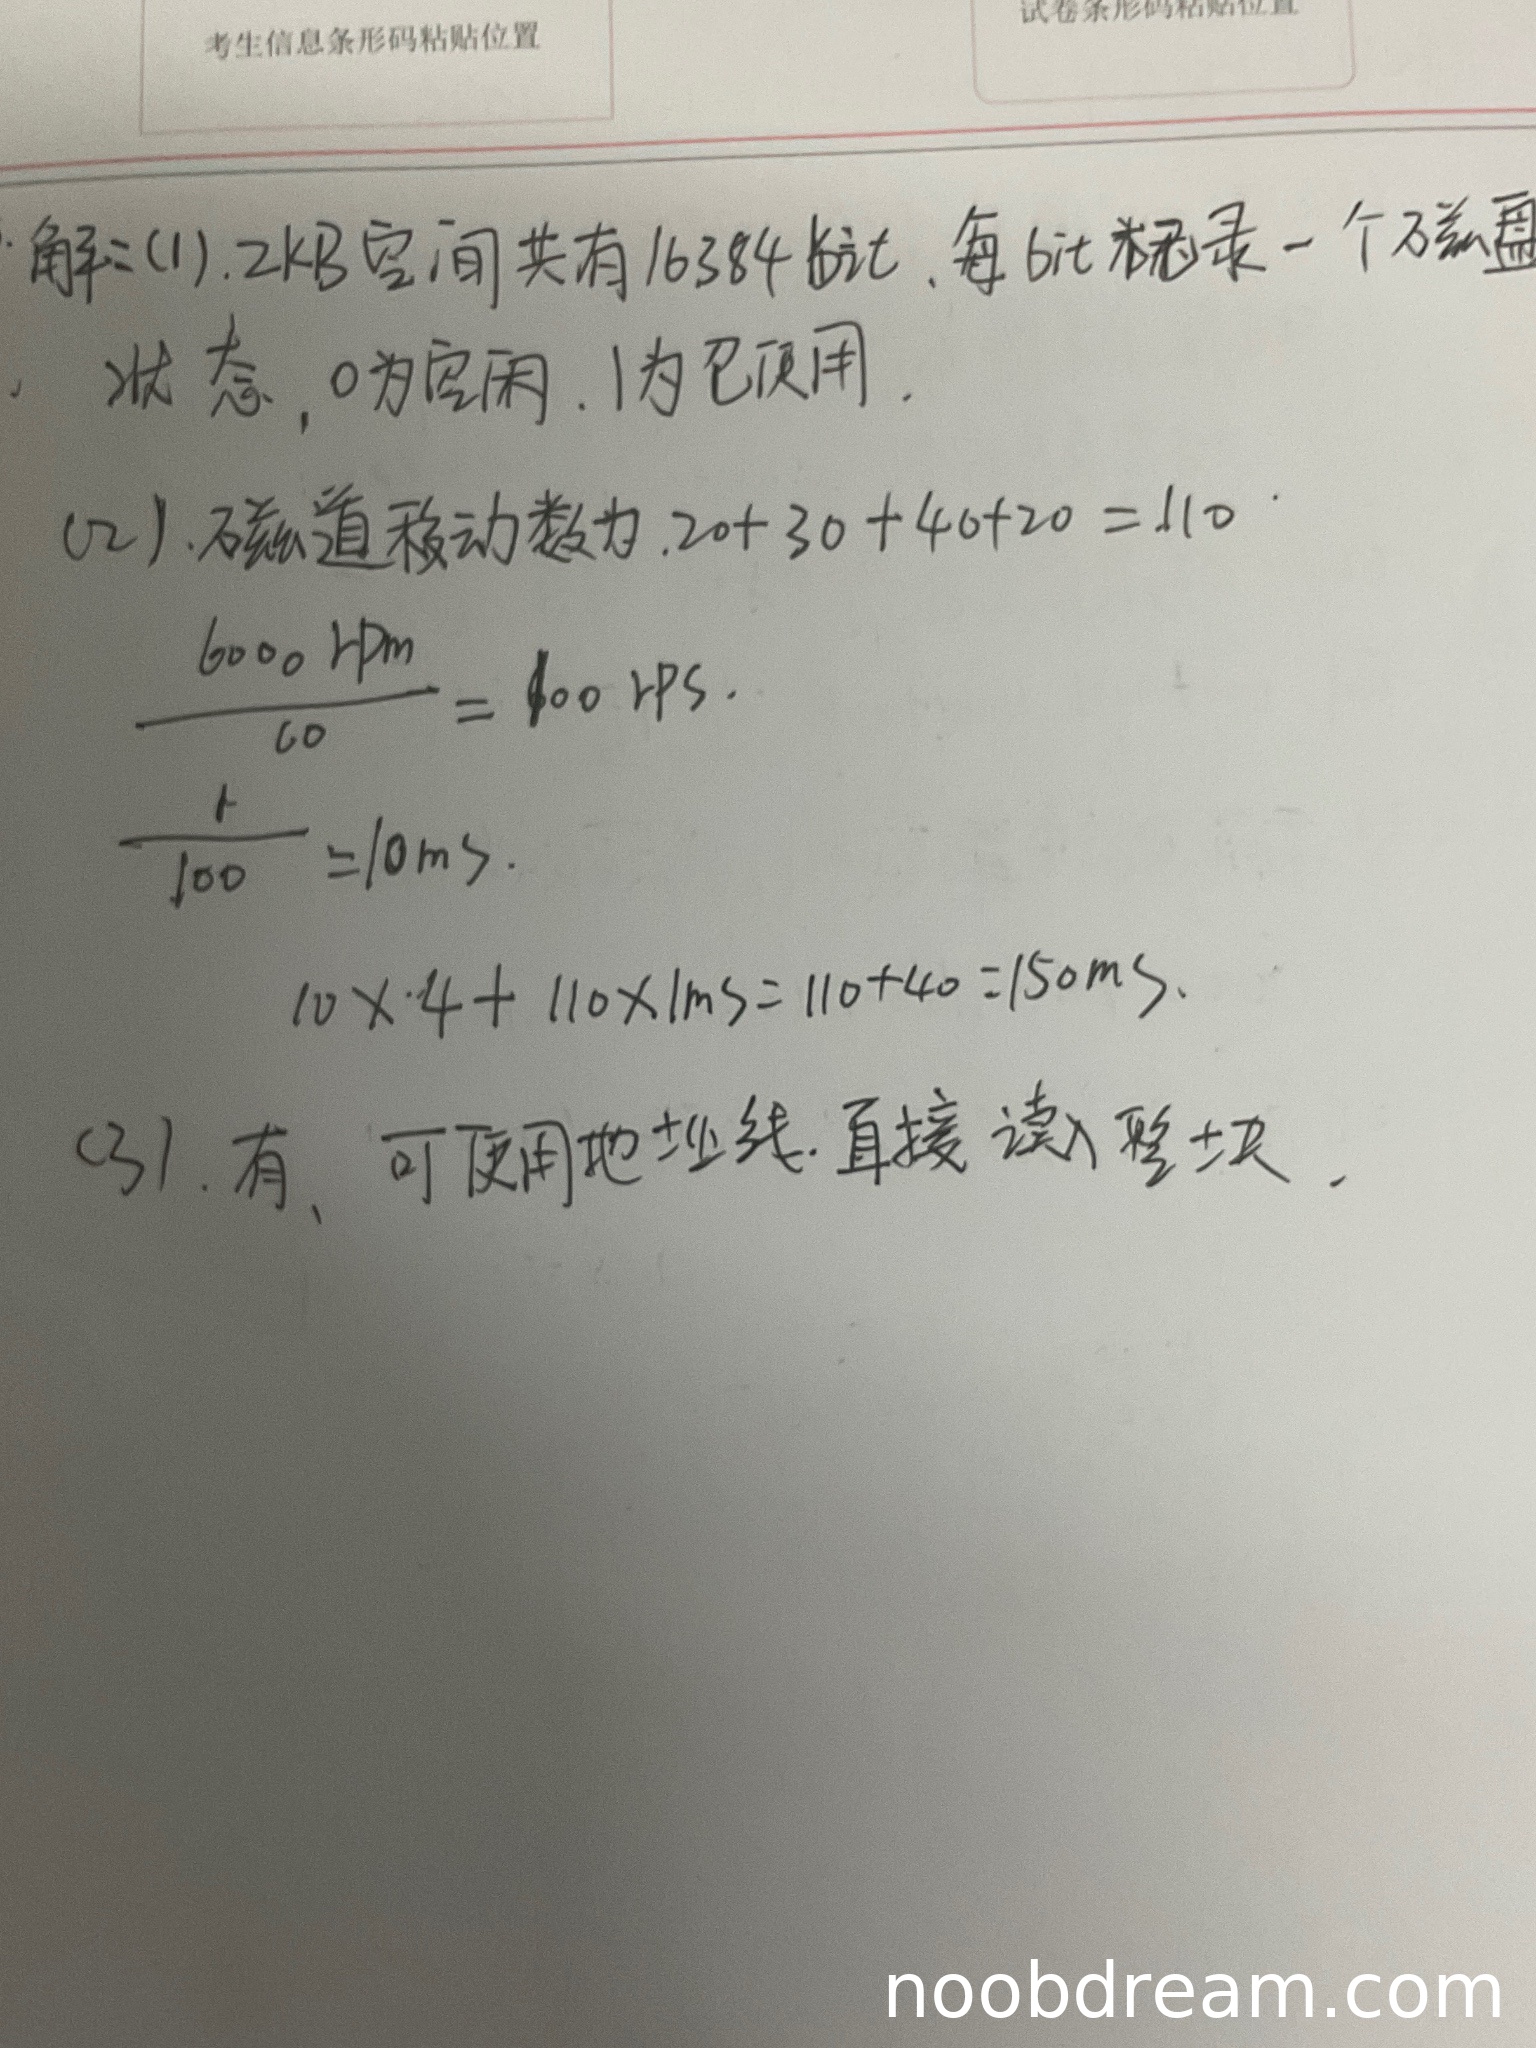 考生信息条形码粘贴位置
试卷条形码粘贴位置
解:(1).2KB空间共有16384bit.每bit记录一个磁盘
状态,0为空闲.1为已使用.
(2).磁道移动数为.20+30+40+20=110
6000rpm
60
=100rps.
1
100
=10ms.
10×4+110×1ms=110+40=150ms.
(3).有、可使用地址线.直接读入整块.
noobdream.com